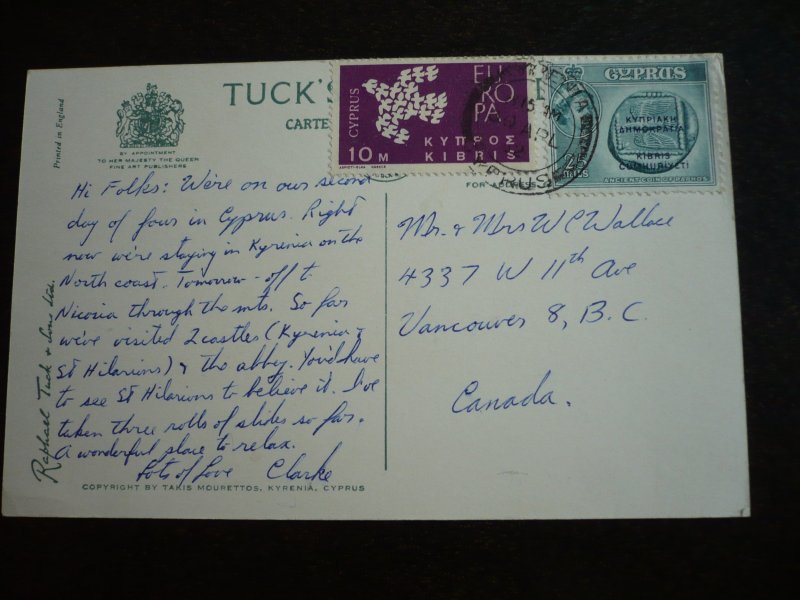 Printed in England
BY APPOINTMENT
TO HER MAJESTY THE QUEEN
FINE ART PUBLISHERS
TUCK'S
CARTE
FOR
Hi Folks: We're on our second
day of four in Cyprus. Right
now we're staying in Kyrenia on the
North coast. Tomorrow - off to
Nicosia through the mts. So far
we've visited 2 castles (Kyrenia &
St Hilarions) & the abby. You'd have
to see St Hilarions to believe it. I've
taken three rolls of slides so far.
A wonderful place to relax.
Lots of Love Clarke
Raphael Tuck & Sons Ltd.
COPYRIGHT BY TAKIS MOURETTOS, KYRENIA, CYPRUS
CYPRUS
EU
RO
PA
10 M
ΚΥΠΡΟΣ
KIBRIS
KYRENIA
15 AM
APL
CYPRUS
CYPRUS
ΚΥΠΡΙΑΚΗ
ΔΗΜΟΚΡΑΤΙΑ
KIBRIS
CUMHURIYETI
25
MILS
ANCIENT COIN OF PAPHOS
Mr. & Mrs W C Wallace
4337 W 11th Ave
Vancouver 8, B.C.
Canada.